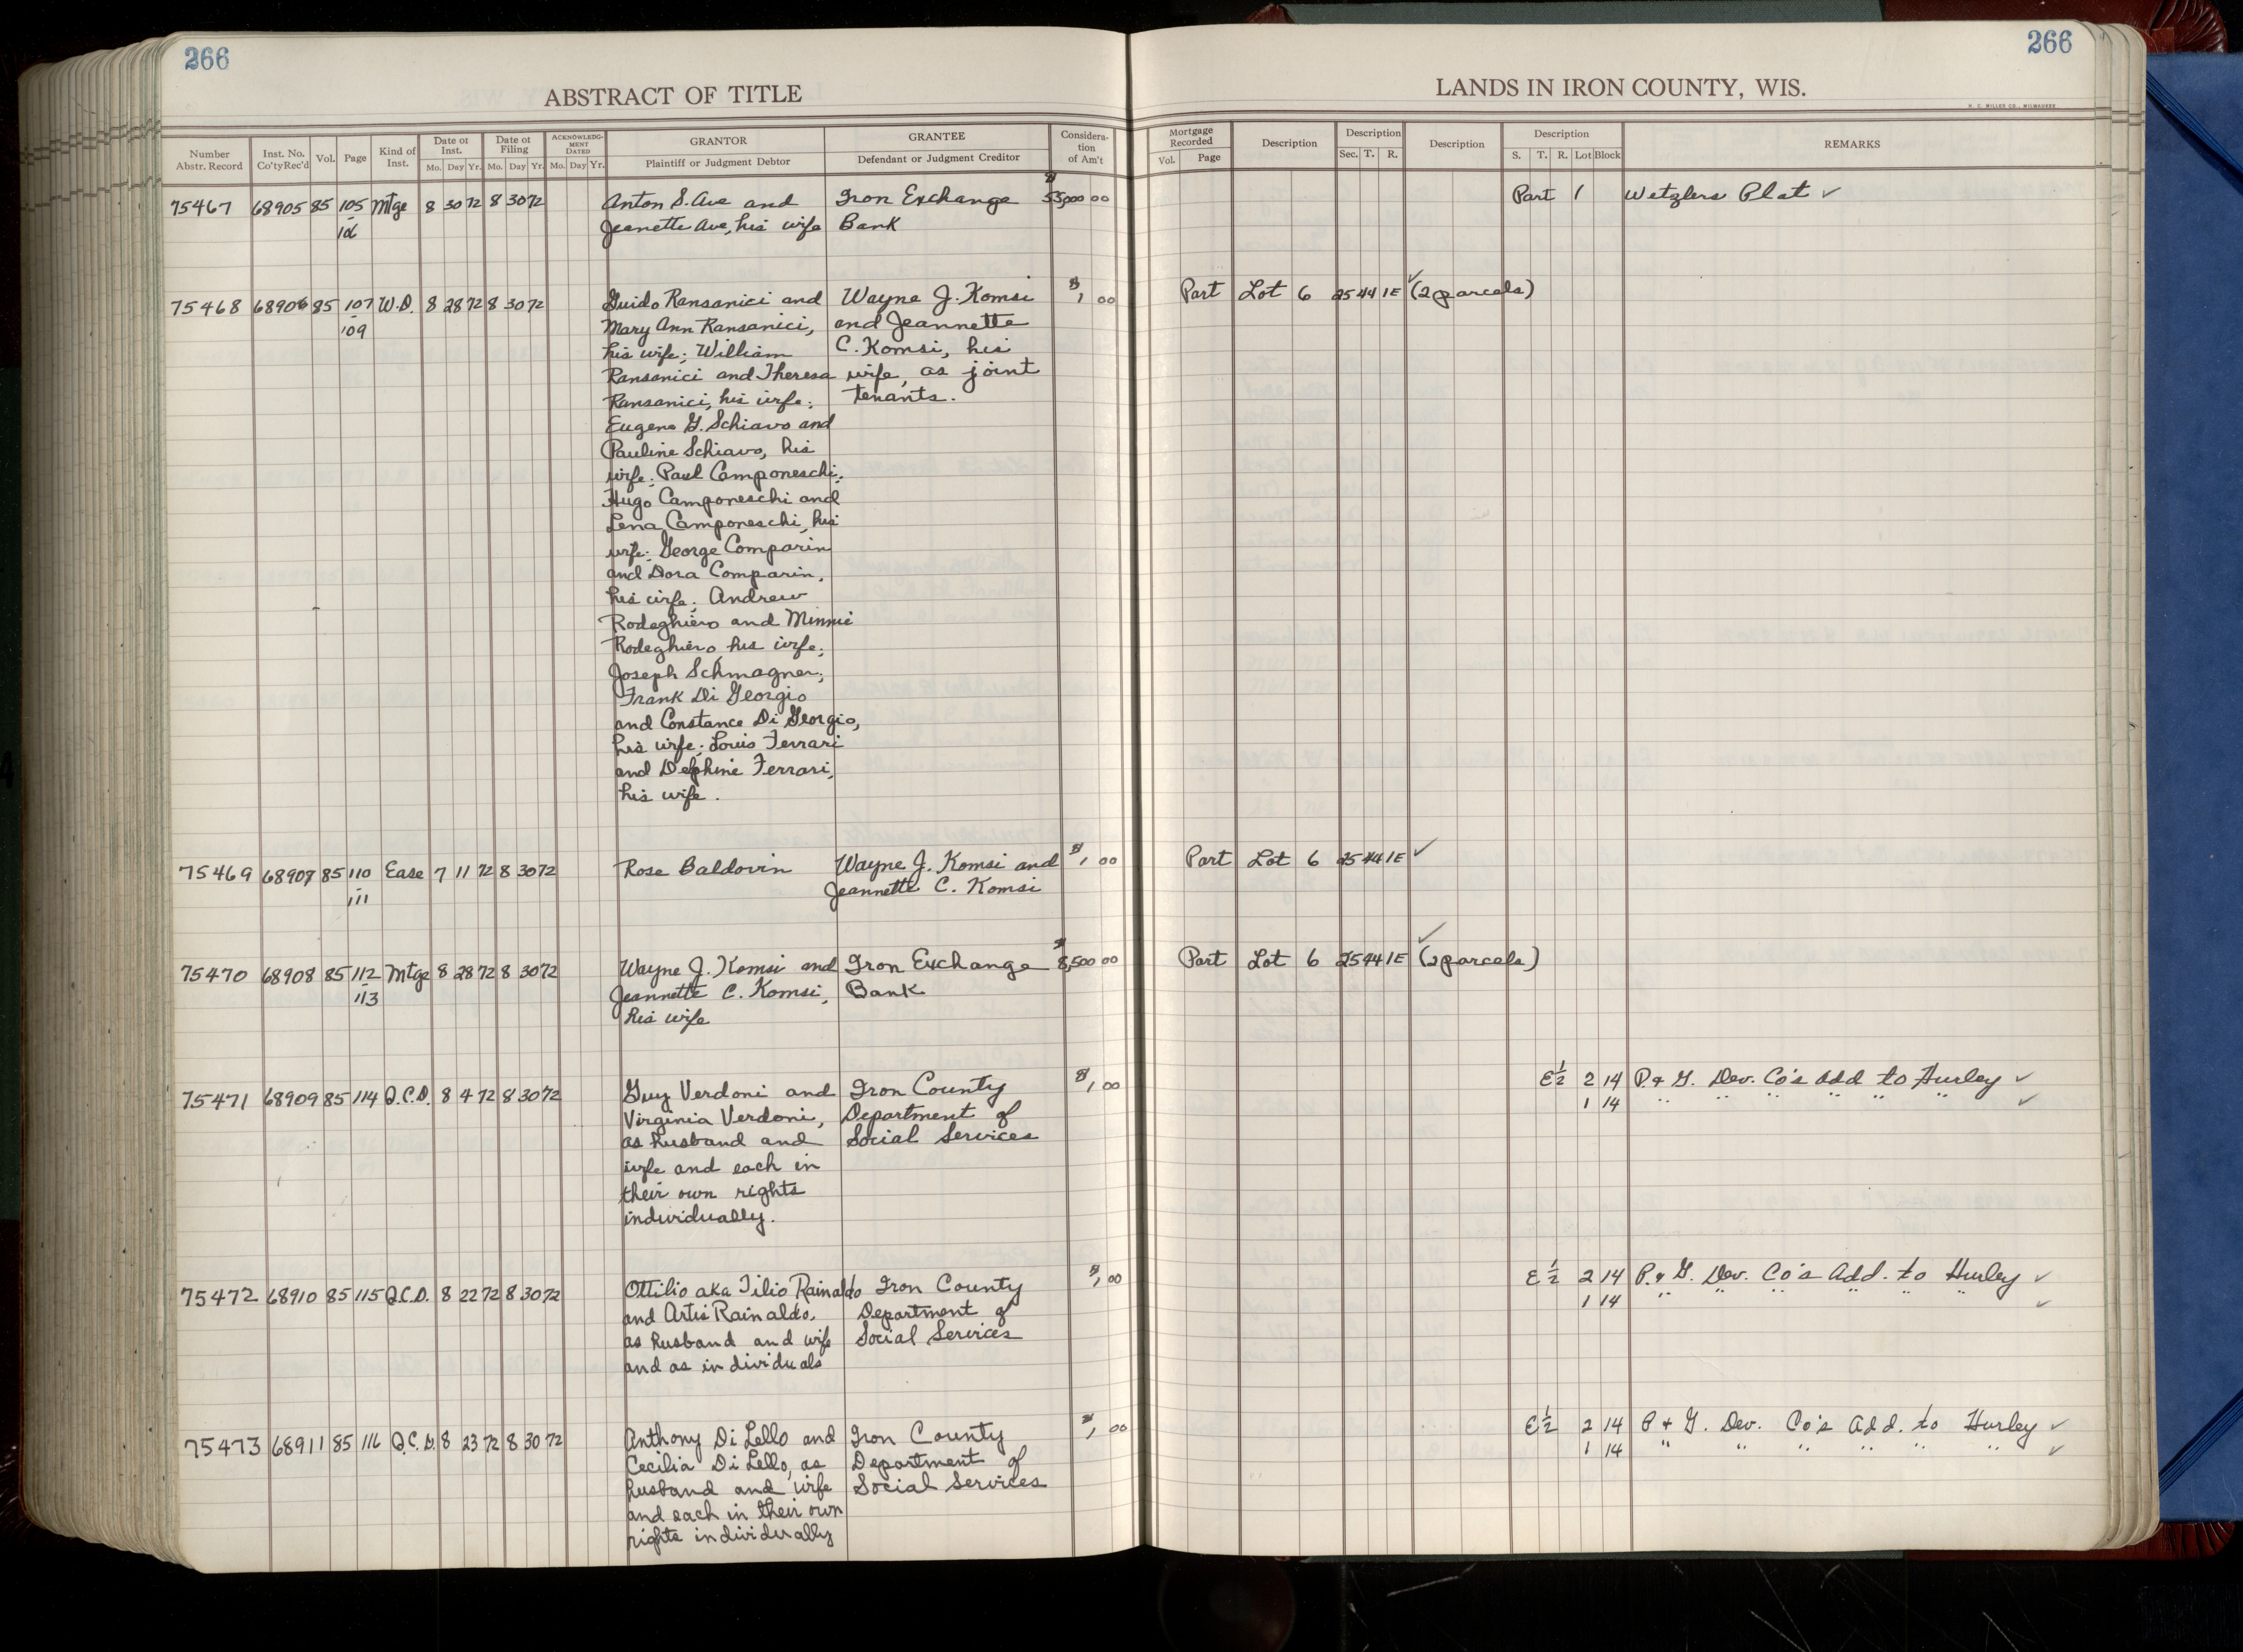 266
266
ABSTRACT OF TITLE
LANDS IN IRON COUNTY, WIS.
H. C. MILLER CO., MILWAUKEE
Number Abstr. Record
Inst. No. Co'ty Rec'd
Vol.
Page
Kind of Inst.
Date of Inst.
Mo. Day Yr.
Date of Filing
Mo. Day Yr.
ACKNOWLEDGMENT DATED
Mo. Day Yr.
GRANTOR
Plaintiff or Judgment Debtor
GRANTEE
Defendant or Judgment Creditor
Considera-tion of Am't
Mortgage Recorded
Vol. Page
Description
Description
Sec. T. R.
Description
Description
S. T. R. Lot Block
REMARKS
75467 68905 85 105 Mtge 8 30 72 8 30 72 Anton S. Ave and Iron Exchange $ 55,000 00 Part 1 Wetzlers Plat ✓
Jeanette Ave, his wife Bank
75468 68906 85 107 W.D. 8 28 72 8 30 72 Guido Ransanici and Wayne J. Komsi $ 1 00 Part Lot 6 25 44 1E ✓ (2 parcels)
- 109 Mary Ann Ransanici, and Jeannette
his wife; William C. Komsi, his
Ransanici and Theresa wife, as joint
Ransanici, his wife; tenants.
Eugene G. Schiavo and
Pauline Schiavo, his
wife; Paul Camponeschi;
Hugo Camponeschi and
Lena Camponeschi, his
wife; George Comparin
and Dora Comparin,
his wife; Andrew
Rodeghiero and Minnie
Rodeghiero, his wife;
Joseph Schmagner;
Frank Di Georgio
and Constance Di Georgio,
his wife; Louis Ferrari
and Delphine Ferrari,
his wife.
75469 68907 85 110 Ease 7 11 72 8 30 72 Rose Baldovin Wayne J. Komsi and $ 1 00 Part Lot 6 25 44 1E ✓
- 111 Jeannette C. Komsi
75470 68908 85 112 Mtge 8 28 72 8 30 72 Wayne J. Komsi and Iron Exchange $ 8,500 00 Part Lot 6 25 44 1E ✓ (2 parcels)
- 113 Jeannette C. Komsi, Bank
his wife
75471 68909 85 114 Q.C.D. 8 4 72 8 30 72 Guy Verdoni and Iron County $ 1 00 E½ 2 14 P. & G. Dev. Co's Add to Hurley ✓
Virginia Verdoni, Department of 1 14 " " " " " " ✓
as husband and Social Services
wife and each in
their own rights
individually.
75472 68910 85 115 Q.C.D. 8 22 72 8 30 72 Ottilio aka Tilio Rainaldo Iron County $ 1 00 E½ 2 14 P. & G. Dev. Co's Add. to Hurley ✓
and Artis Rainaldo, Department of 1 14 " " " " " " ✓
as husband and wife Social Services
and as individuals
75473 68911 85 116 Q.C.D. 8 23 72 8 30 72 Anthony Di Lello and Iron County $ 1 00 E½ 2 14 P & G. Dev. Co's Add. to Hurley ✓
Cecilia Di Lello, as Department of 1 14 " " " " " " ✓
husband and wife Social Services
and each in their own
rights individually